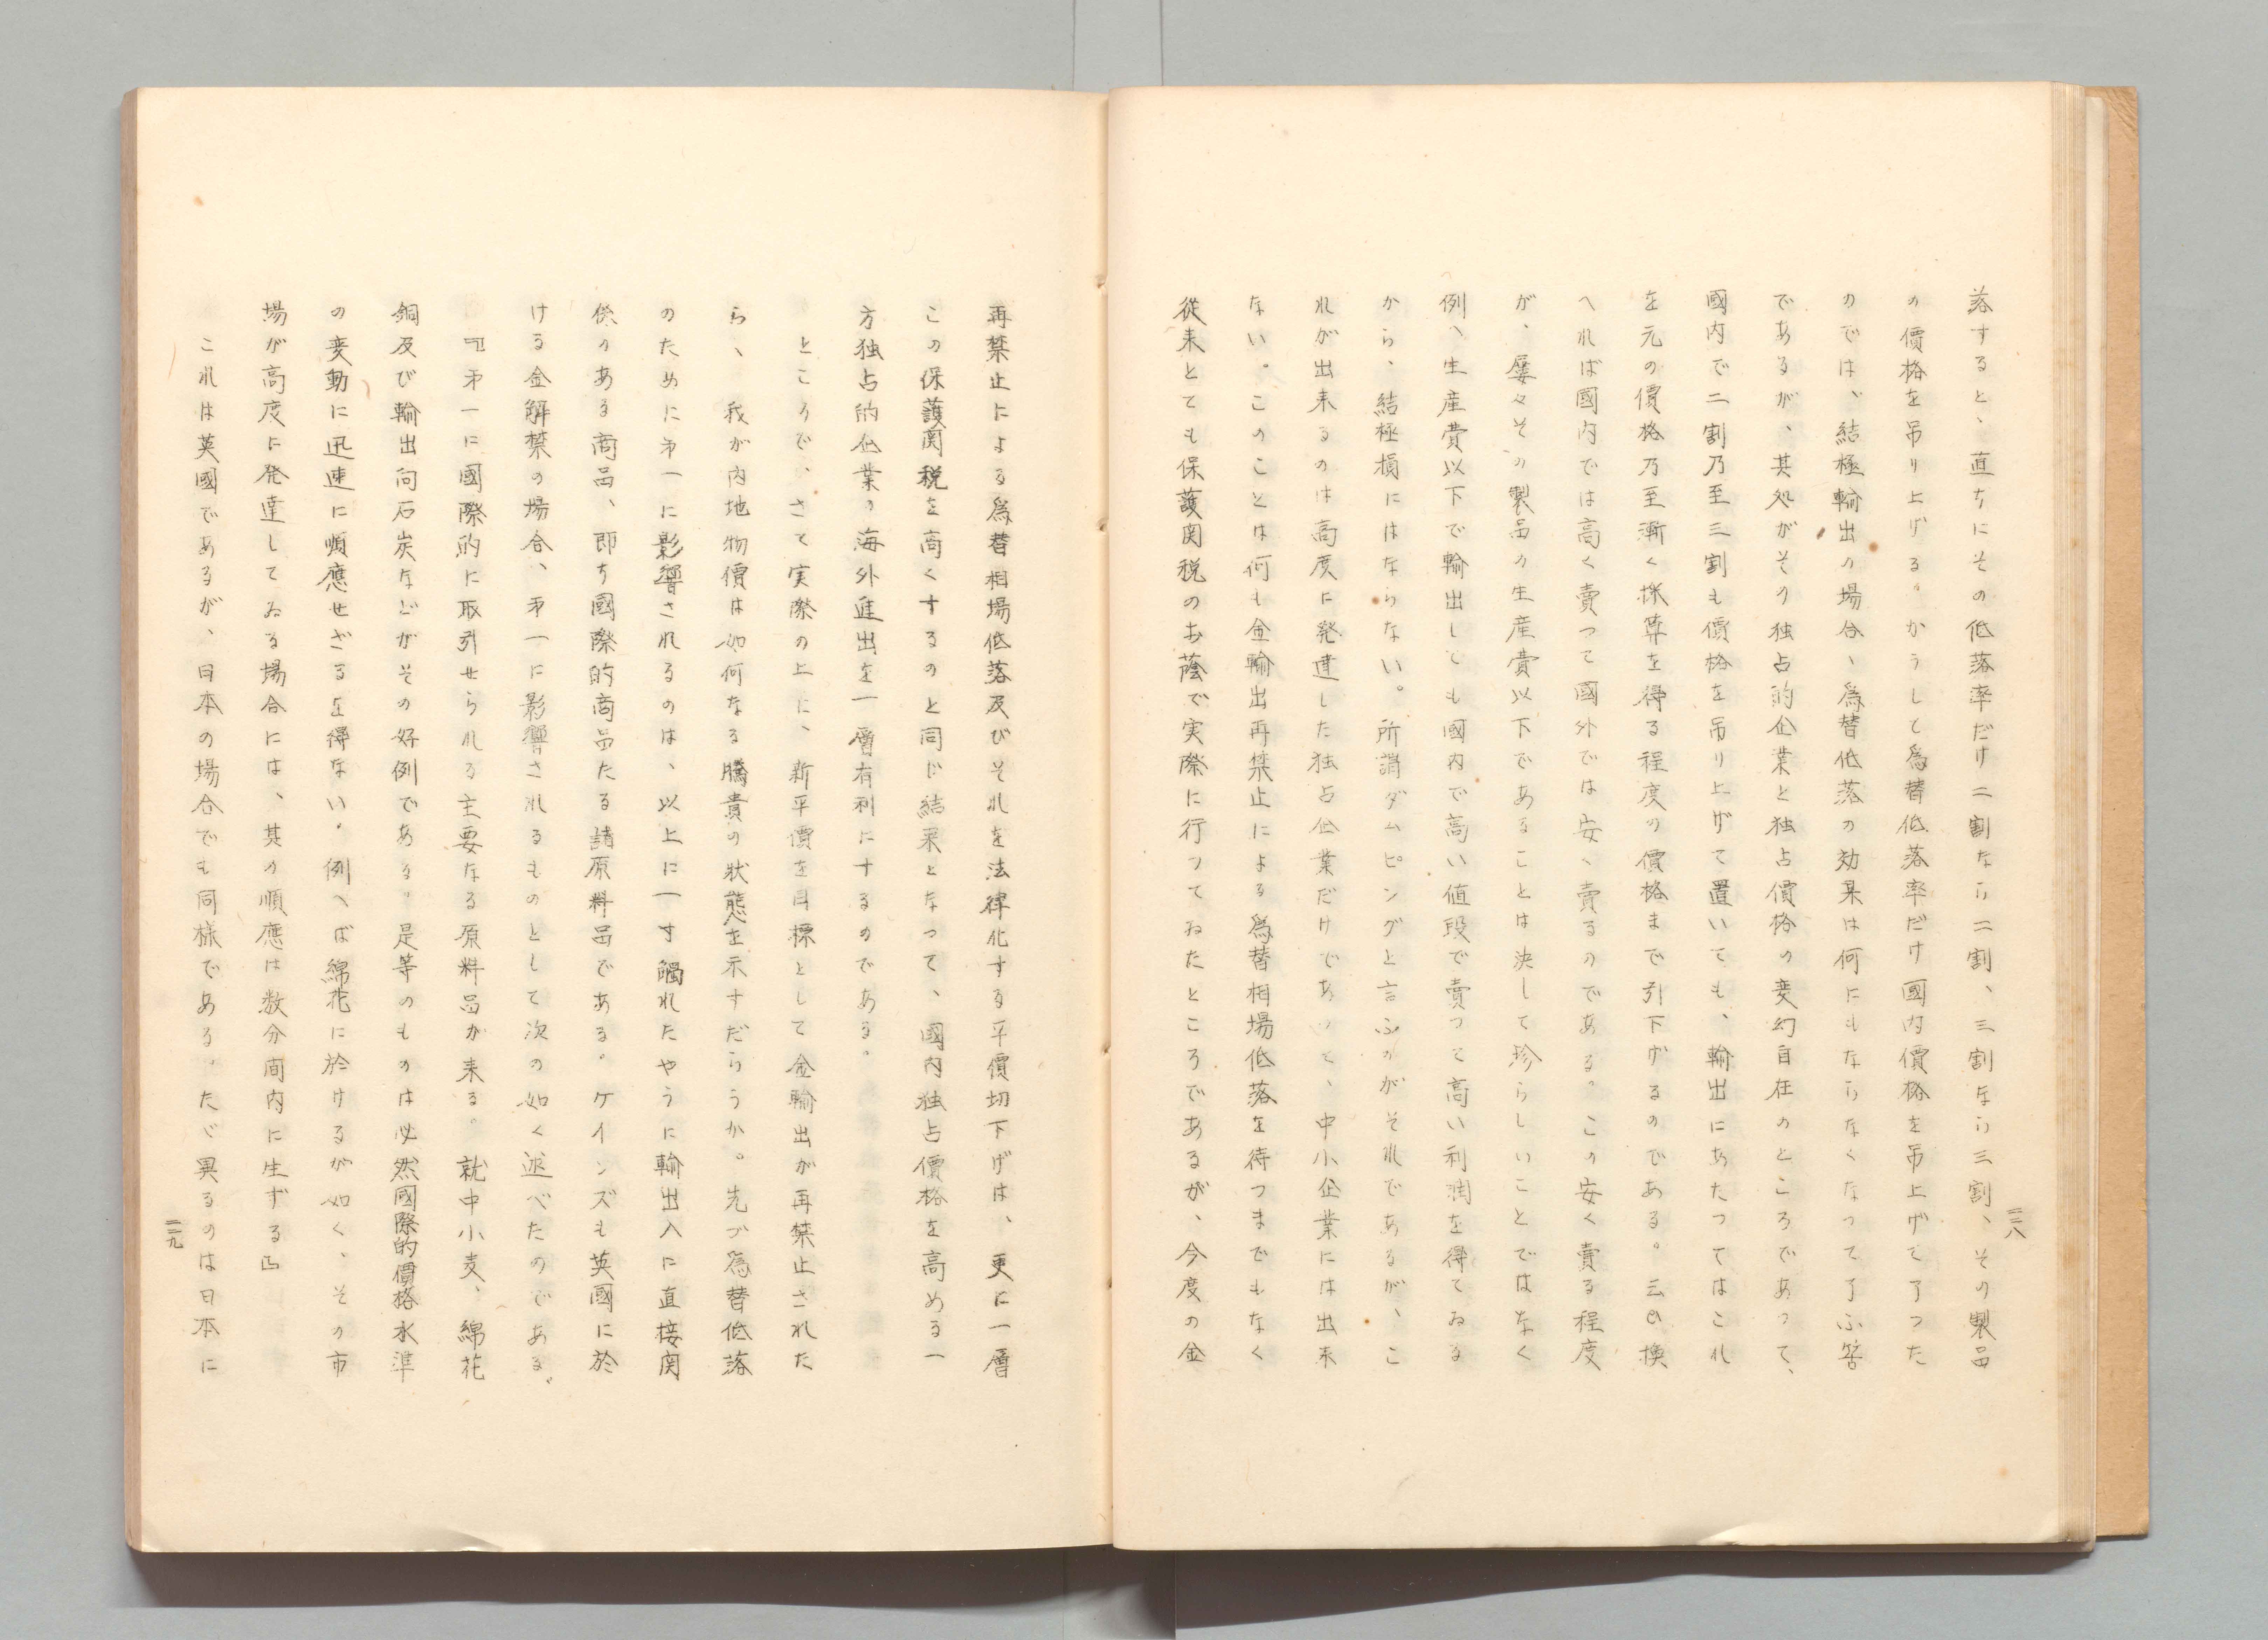 落すると、直ちにその低落率だけ二割なら二割、三割なら三割、その製品
の價格を吊り上げる。かうして爲替低落率だけ國内價格を吊上げて了つた
のでは、結極輸出の場合、爲替低落の効果は何にもならなくなつて了ふ筈
であるが、其処がその独占的企業と独占價格の変幻自在のところであつて、
國内で二割乃至三割も價格を吊り上げて置いても、輸出にあたつてはこれ
を元の價格乃至漸く採算を得る程度の價格まで引下げるのである。云ひ換
へれば國内では高く賣つて國外では安く賣るのである。この安く賣る程度
が、屡々その製品の生産費以下であることは決して珍らしいことではなく
例へ生産費以下で輸出しても國内で高い値段で賣つて高い利潤を得てゐる
から、結極損にはならない。所謂ダムピングと言ふのがそれであるが、こ
れが出来るのは高度に発達した独占企業だけであつて、中小企業には出来
ない。このことは何も金輸出再禁止による爲替相場低落を待つまでもなく
従来とても保護関税のお蔭で実際に行つてゐたところであるが、今度の金
二八
再禁止による爲替相場低落及びそれを法律化する平價切下げは、更に一層
この保護関税を高くするのと同じ結果となつて、國内独占價格を高める一
方独占的企業の海外進出を一層有利にするのである。
ところで、さて実際の上に、新平價を目標として金輸出が再禁止された
ら、我が内地物價は如何なる騰貴の状態を示すだらうか。先づ爲替低落
のために㐧一に影響されるのは、以上に一寸觸れたやうに輸出入に直接関
係のある商品、即ち國際的商品たる諸原料品である。ケインズも英國に於
ける金解禁の場合、㐧一に影響されるものとして次の如く述べたのである。
『㐧一に國際的に取引せられる主要なる原料品が来る。就中小麦、綿花
銅及び輸出向石炭などがその好例である。是等のものは必然國際的價格水準
の変動に迅速に順應せざるを得ない。例へば綿花に於けるが如く、その市
場が高度に発達してゐる場合には、其の順應は数分間内に生ずる』
これは英國であるが、日本の場合でも同様である。たゞ異るのは日本に
二九